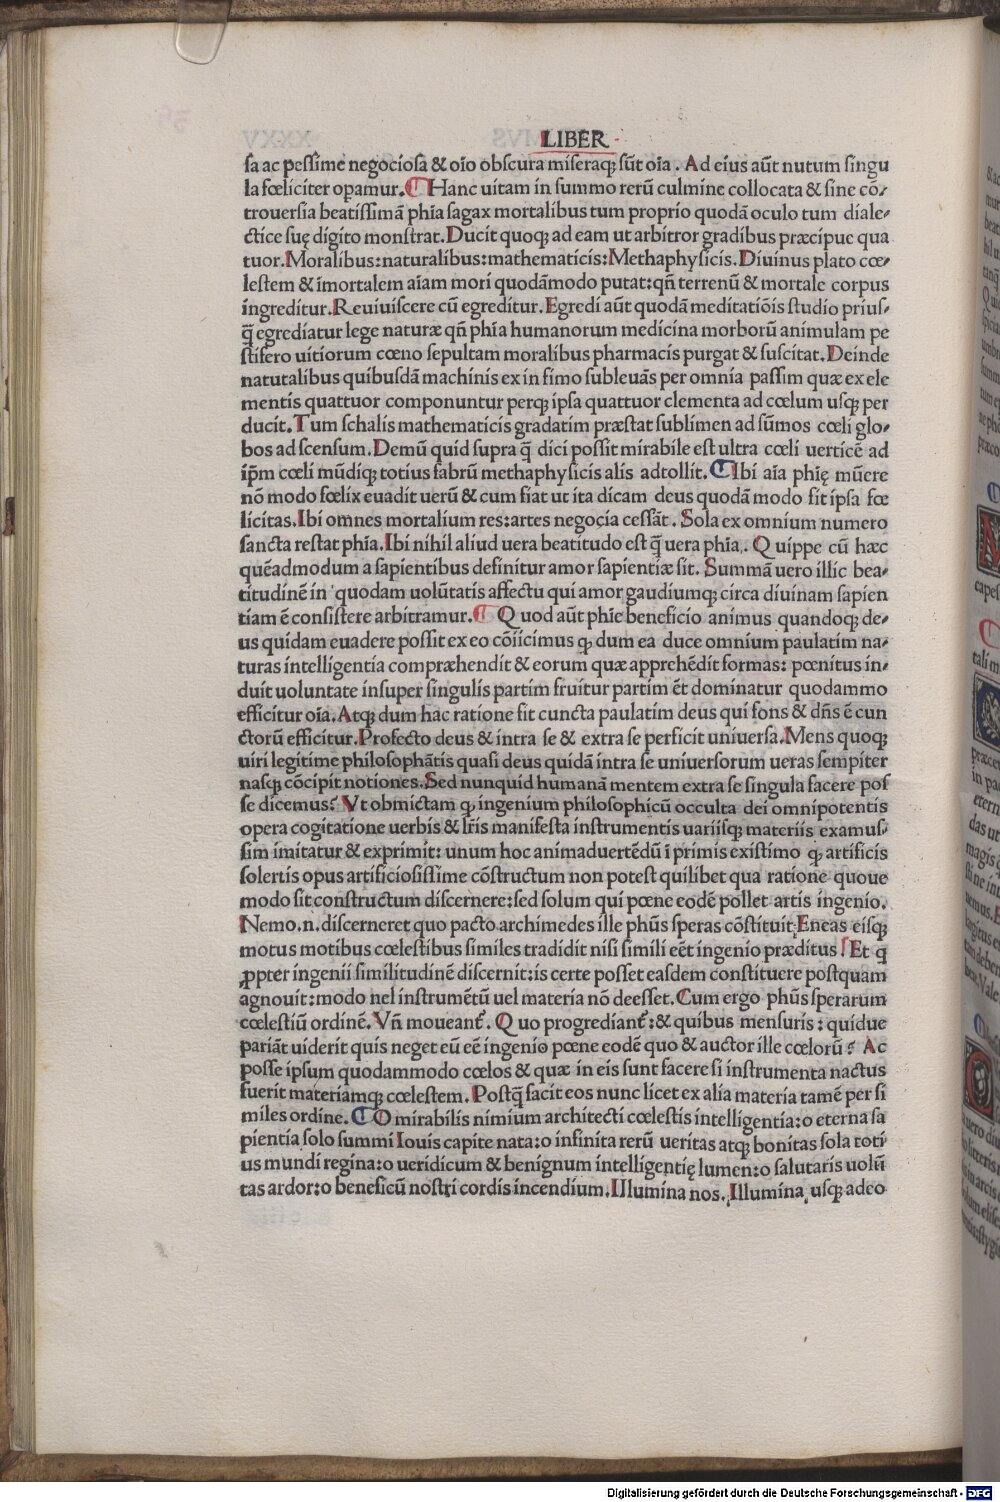 LIBER
sa ac pessime negociosa & oīo obscura miseraqꝫ sūt oīa. Ad eius aūt nutum singu
la fœliciter opamur. Hanc uitam in summo rerū culmine collocata & sine cō-
trouersia beatissimā phīa sagax mortalibus tum proprio quodā oculo tum diale-
ctice suę digito monstrat. Ducit quoqꝫ ad eam ut arbitror gradibus præcipue qua
tuor. Moralibus: naturalibus: mathematicis: Methaphysicis. Diuinus plato cœ-
lestem & īmortalem aīam mori quodāmodo putat: qñ terrenū & mortale corpus
ingreditur. Reuiuiscere cū egreditur. Egredi aūt quodā meditatiōis studio prius-
q̄ egrediatur lege naturæ qñ phīa humanorum medicina morborū animulam pe
stifero uitiorum cœno sepultam moralibus pharmacis purgat & suscitat. Deinde
natutalibus quibusdā machinis ex in fimo subleuās per omnia passim quæ ex ele
mentis quattuor componuntur perqꝫ ipsa quattuor elementa ad cœlum usqꝫ per
ducit. Tum schalis mathematicis gradatim præstat sublimen ad sūmos cœli glo-
bos ad scensum. Demū quid supra q̄ dici possit mirabile est ultra cœli uerticē ad
ip̄m cœli mūdiqꝫ totius fabrū methaphysicis alis adtollit. Ibi aīa phię mūere
nō modo fœlix euadit uerū & cum fiat ut ita dicam deus quodā modo fit ipsa fœ
licitas. Ibi omnes mortalium res: artes negocia cessāt. Sola ex omnium numero
sancta restat phīa. Ibi nihil aliud uera beatitudo est q̄ uera phīa. Quippe cū hæc
quēadmodum a sapientibus definitur amor sapientiæ sit. Summā uero illic bea-
titudinē in quodam uolūtatis affectu qui amor gaudiumqꝫ circa diuinam sapien
tiam ē consistere arbitramur. Quod aūt phīe beneficio animus quandoqꝫ de-
us quidam euadere possit ex eo cōiicimus qꝫ dum ea duce omnium paulatim na-
turas intelligentia compræhendit & eorum quæ apprehēdit formas: pœnitus in-
duit uoluntate insuper singulis partim fruitur partim ēt dominatur quodammo
efficitur oīa. Atqꝫ dum hac ratione fit cuncta paulatim deus qui fons & dñs ē cun
ctorū efficitur. Profecto deus & intra se & extra se perficit uniuersa. Mens quoqꝫ
uiri legitime philosophātis quasi deus quidā intra se uniuersorum ueras sempiter
nasqꝫ cōcipit notiones. Sed nunquid humanā mentem extra se singula facere pos
se dicemus? Vt obmictam qꝫ ingenium philosophicū occulta dei omnipotentis
opera cogitatione uerbis & lr̄is manifesta instrumentis uariisqꝫ materiis examus-
sim imitatur & exprimit: unum hoc animaduertēdū ī primis existimo qꝫ artificis
solertis opus artificiosissime cōstructum non potest quilibet qua ratione quoue
modo sit constructum discernere: sed solum qui pœne eodē pollet artis ingenio.
Nemo.n. discerneret quo pacto archimedes ille phūs speras cōstituit Eneas eisqꝫ
motus motibus cœlestibus similes tradidit nisi simili eēt ingenio præditus. Et q
ꝓpter ingenii similitudinē discernit: is certe posset easdem constituere postquam
agnouit: modo nel instrumētū uel materia nō deesset. Cum ergo phūs sperarum
cœlestiū ordinē. Vñ moueant̄. Quo progrediant̄: & quibus mensuris: quidue
pariāt uiderit quis neget eū eē ingenio pœne eodē quo & auctor ille cœlorū? Ac
posse ipsum quodammodo cœlos & quæ in eis sunt facere si instrumenta nactus
fuerit materiamqꝫ cœlestem. Postq̄ facit eos nunc licet ex alia materia tamē per si
miles ordine. O mirabilis nimium architecti cœlestis intelligentia: o eterna sa
pientia solo summi Iouis capite nata: o infinita rerū ueritas atqꝫ bonitas sola toti
us mundi regina: o ueridicum & benignum intelligentię lumen: o salutaris uolū
tas ardor: o beneficū nostri cordis incendium. Illumina nos. Illumina usqꝫ adeo
Digitalisierung gefördert durch die Deutsche Forschungsgemeinschaft - DFG